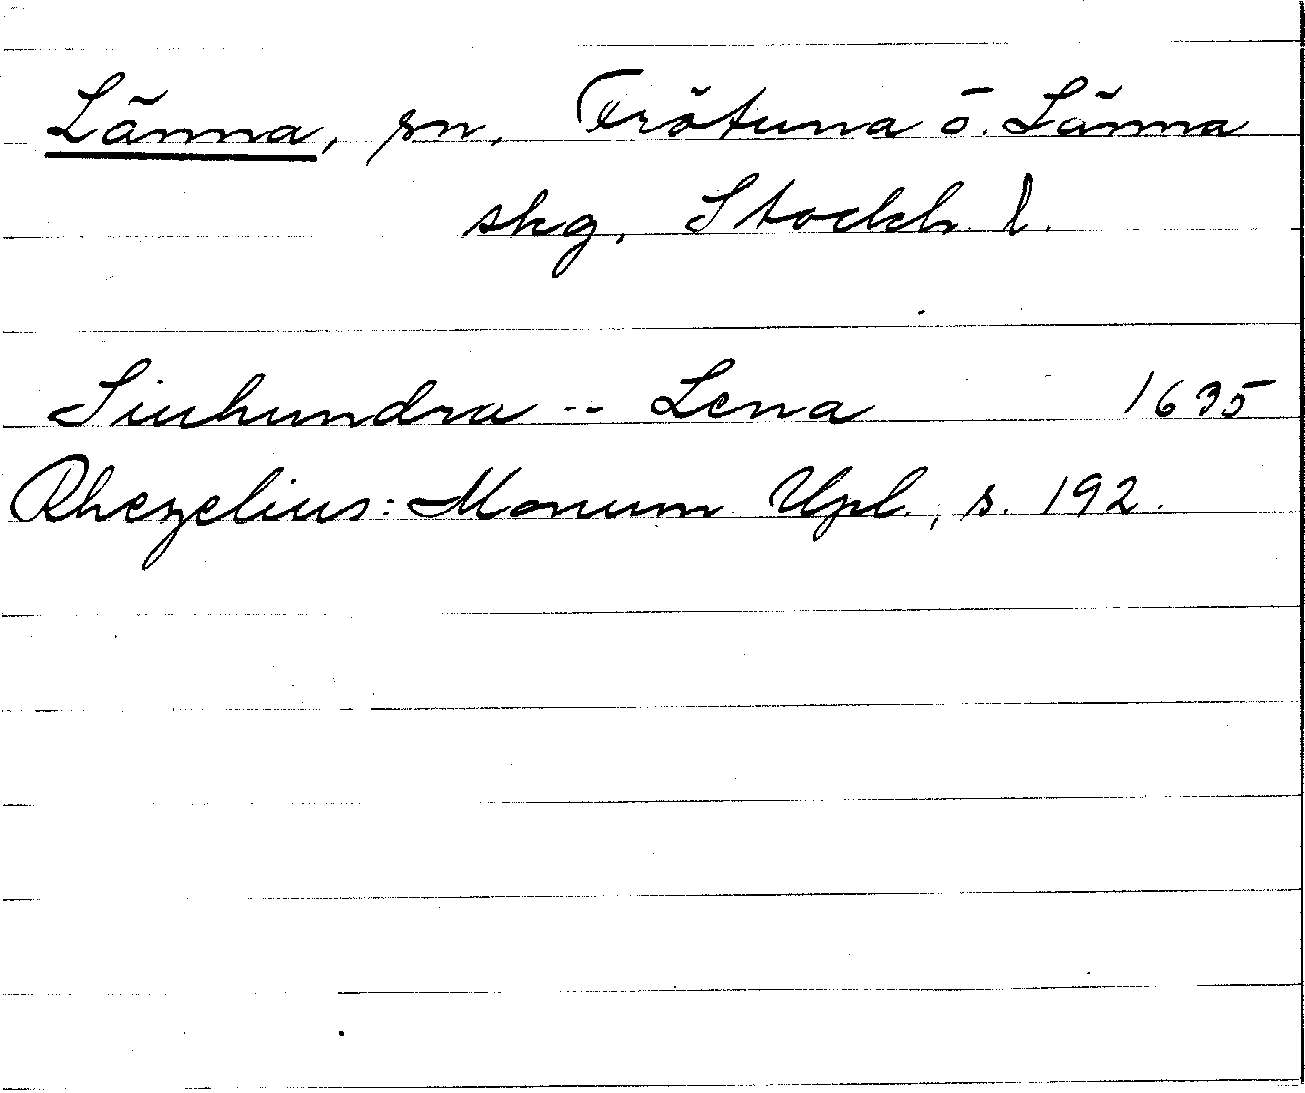 Länna, sn, Frötuna o. Länna
skg, Stockh. l.
Siuhundra -- Lena 1635
Rhezelius: Monum Upl., s. 192.